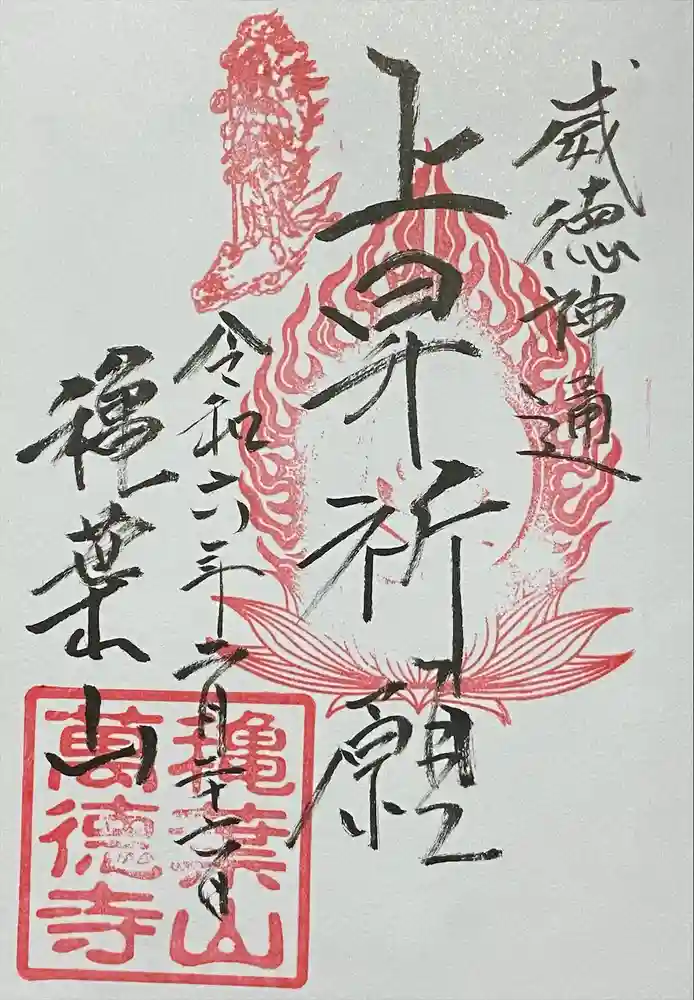 威徳神通
上昇祈願
令和六年二月二十六日
穐葉山
穐葉山
萬徳寺